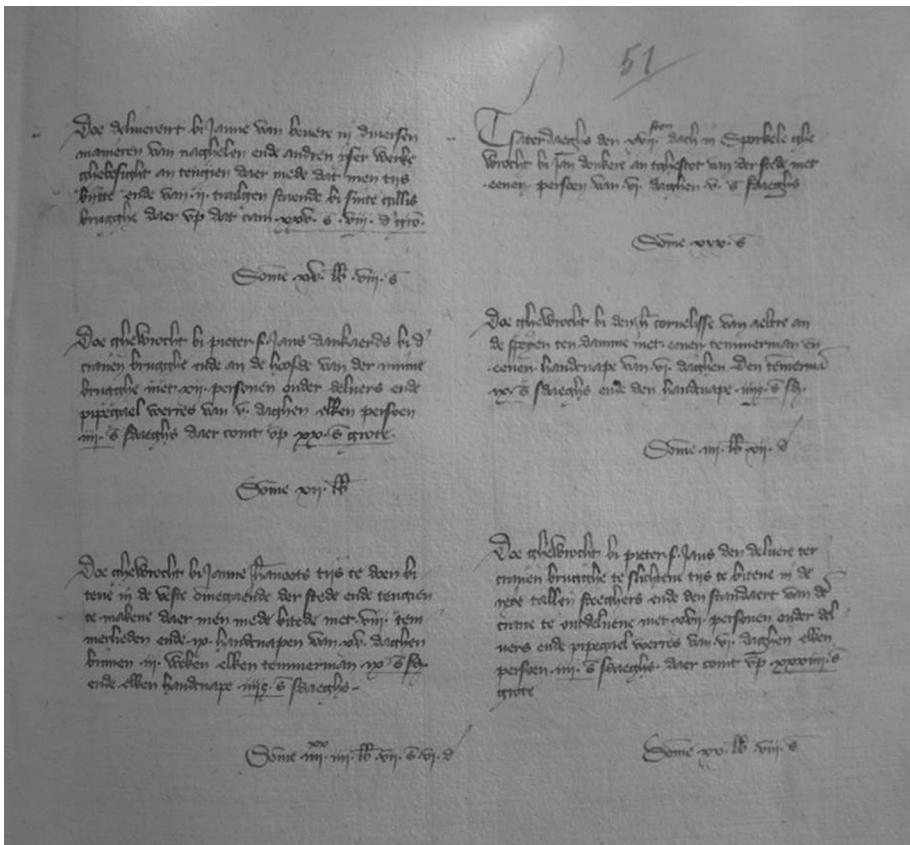 51
Doe delivereert bi Janne van bevere in diversen
manieren van naghelen ende andren iser werke
ghebesight an tengien daer mede dat men tijs
bitte ende van .ii. staende bi sinte gillis
brugghe daer up dat cam .xxv. s. viii. d. gro.
Some xv. lb. viii. s
Doe ghewrocht bi pieter f. Jans dankaerds bi d'
cranen brugghe ende an de hofde van der
brugghe met .xii. personen onder delvers ende
pipegael veeries van .v. daghen elken persoen
.iiii. s sdaeghs daer comt up xx. s grote.
Some xii. lb
Doe ghewrocht bi Janne tijs te doen bi
tene in de veste omegaende der stede ende tengien
te makene daer men mede bitede met .viii. tem
merlieden ende .ix. handcnapen van .xv. daghen
binnen .iii. weken elken temmerman ix s sd.
ende elken handcnape s sdaeghs.
Some iiii. lb. vii. s. vi. d
Tsaterdaeghs den dach in Sporkele ghe
wrocht bi Jan donkere an tghestot van der stede met
.eenen. persoen van .vi. daghen .v. s sdaeghs
Some xxx. s
Doe ghewrocht bi cornelisse van aeltre an
de speyen ten damme met eenen temmerman en
.eenen. handcnape van .vi. daghen. Den temmerman
ix. s sdaeghs ende den handcnape s sd.
Some iiii. lb. d
Doe ghewrocht bi pieter f. Jans den delvere ter
cranen brugghe te slichtene tijs te bitene in de
ende den standaert van der
crane te ontdelvene met xvii personen onder del
vers ende pipegael veeries van .vi. daghen elken
persoen .iii. s sdaeghs. daer comt up s
grote
Some xv. lb. viii. s